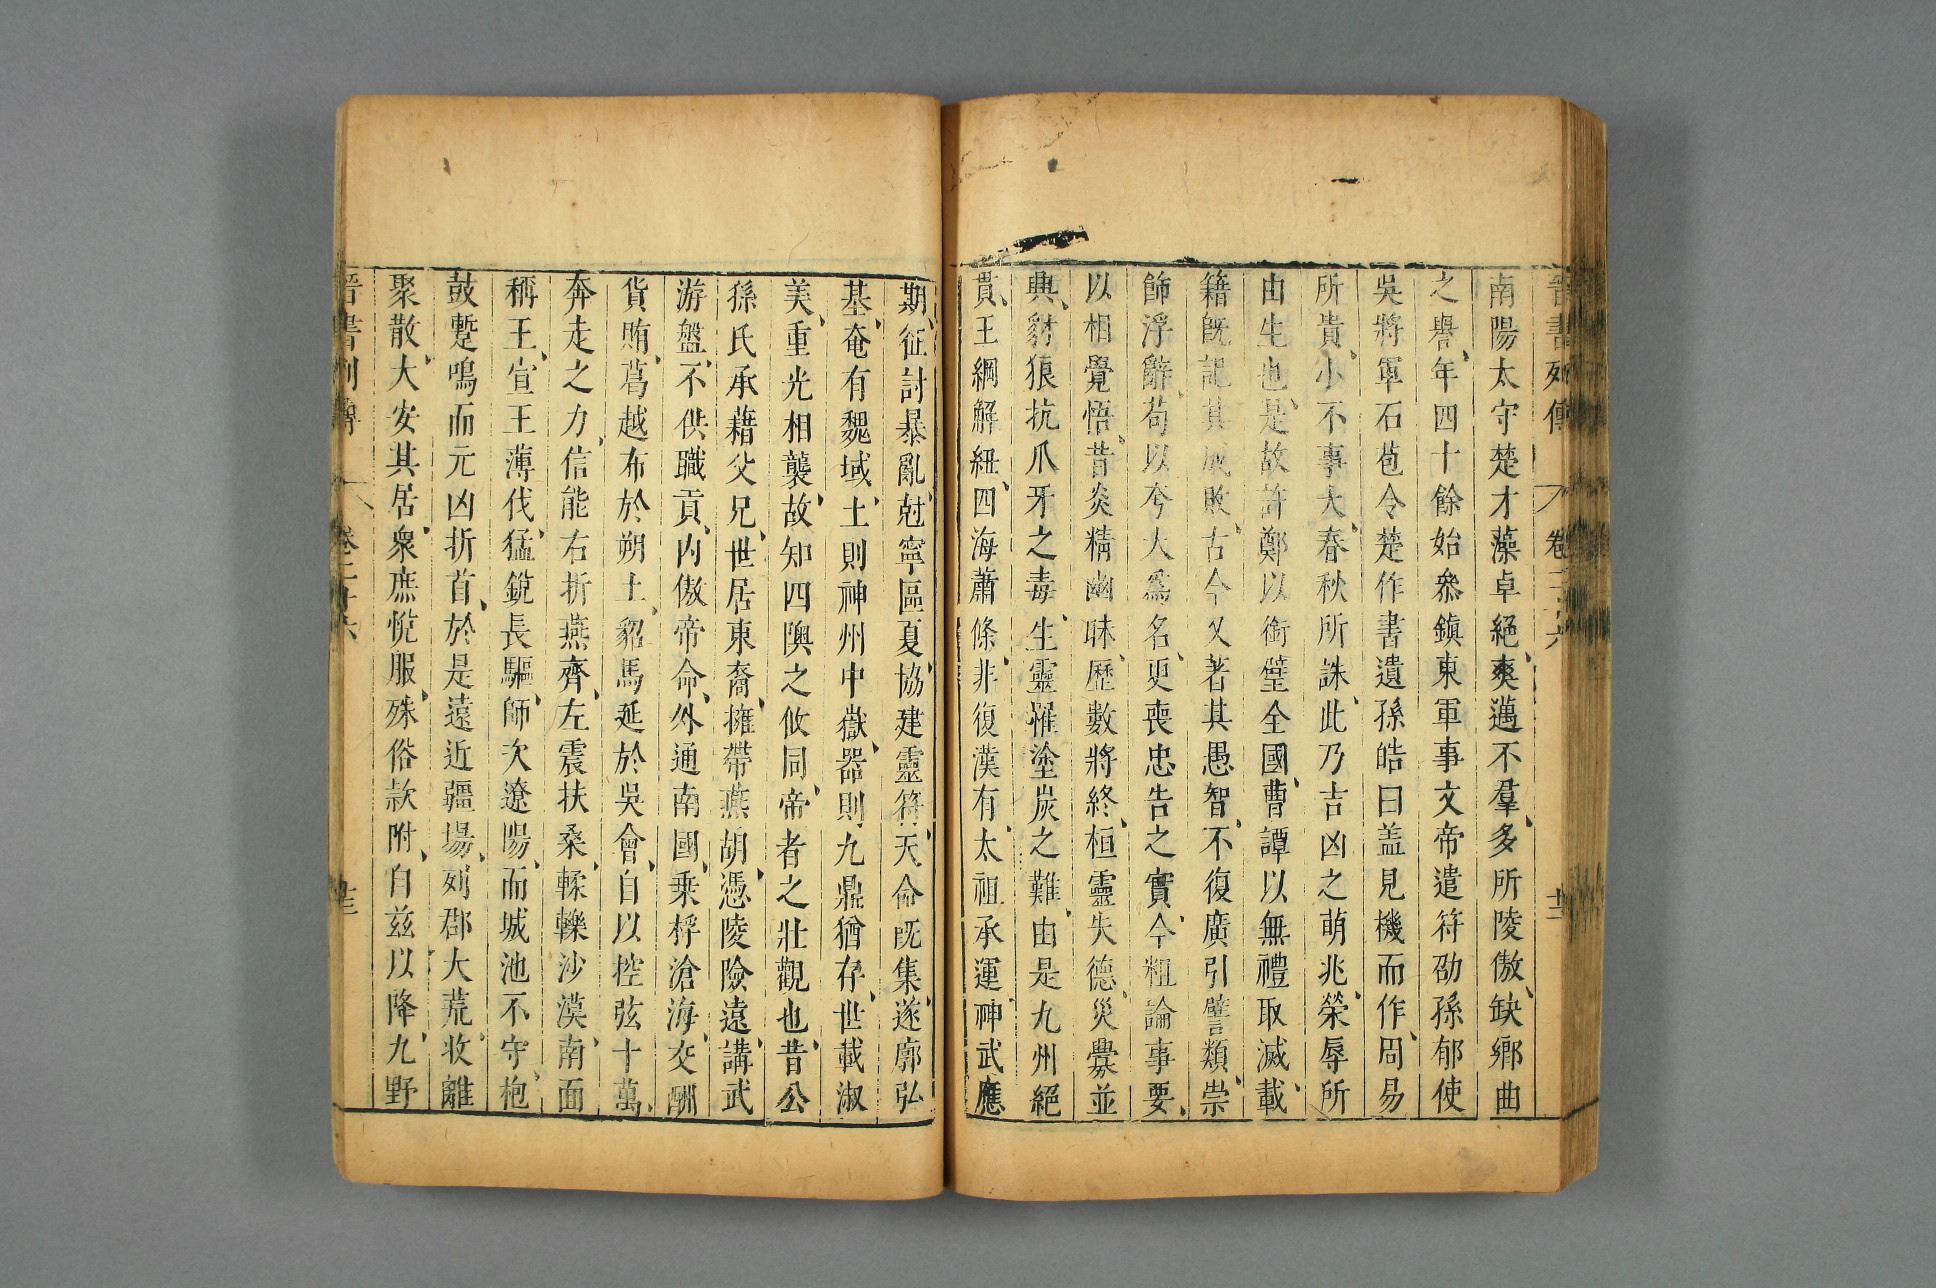 晉書列傳 卷二十六 十二
南陽太守楚才藻卓絕爽邁不羣多所陵傲缺鄉曲
之譽年四十餘始叅鎮東軍事文帝遣符劭孫郁使
吳將軍石苞令楚作書遺孫皓曰盖見機而作周易
所貴小不事大春秋所誅此乃吉凶之萌兆榮辱所
由生也是故許鄭以銜璧全國曹譚以無禮取滅載
籍旣記其成敗古今又著其愚智不復廣引譬類崇
飾浮辭苟以夸大爲名更喪忠告之實今粗論事要
以相覺悟昔炎精幽昧歷數將終桓靈失德災釁並
興豺狼抗爪牙之毒生靈罹塗炭之難由是九州絕
貫王綱解紐四海蕭條非復漢有太祖承運神武應
期征討暴亂尅寧區夏協建靈符天命旣集遂廓弘
基奄有魏域土則神州中嶽器則九鼎猶存世載淑
美重光相襲故知四隩之攸同帝者之壯觀也昔公
孫氏承藉父兄世居東裔擁帶燕胡憑陵險遠講武
游盤不供職貢內傲帝命外通南國乗桴滄海交酬
貨賄葛越布於朔土貂馬延於吳會自以控弦十萬
奔走之力信能右折燕齊左震扶桑輮轢沙漠南面
稱王宣王薄伐猛銳長驅師次遼陽而城池不守枹
鼓蹔鳴而元凶折首於是遠近疆場列郡大荒收離
聚散大安其居衆庶悅服殊俗款附自兹以降九野
晉書列傳 卷二十六 十三